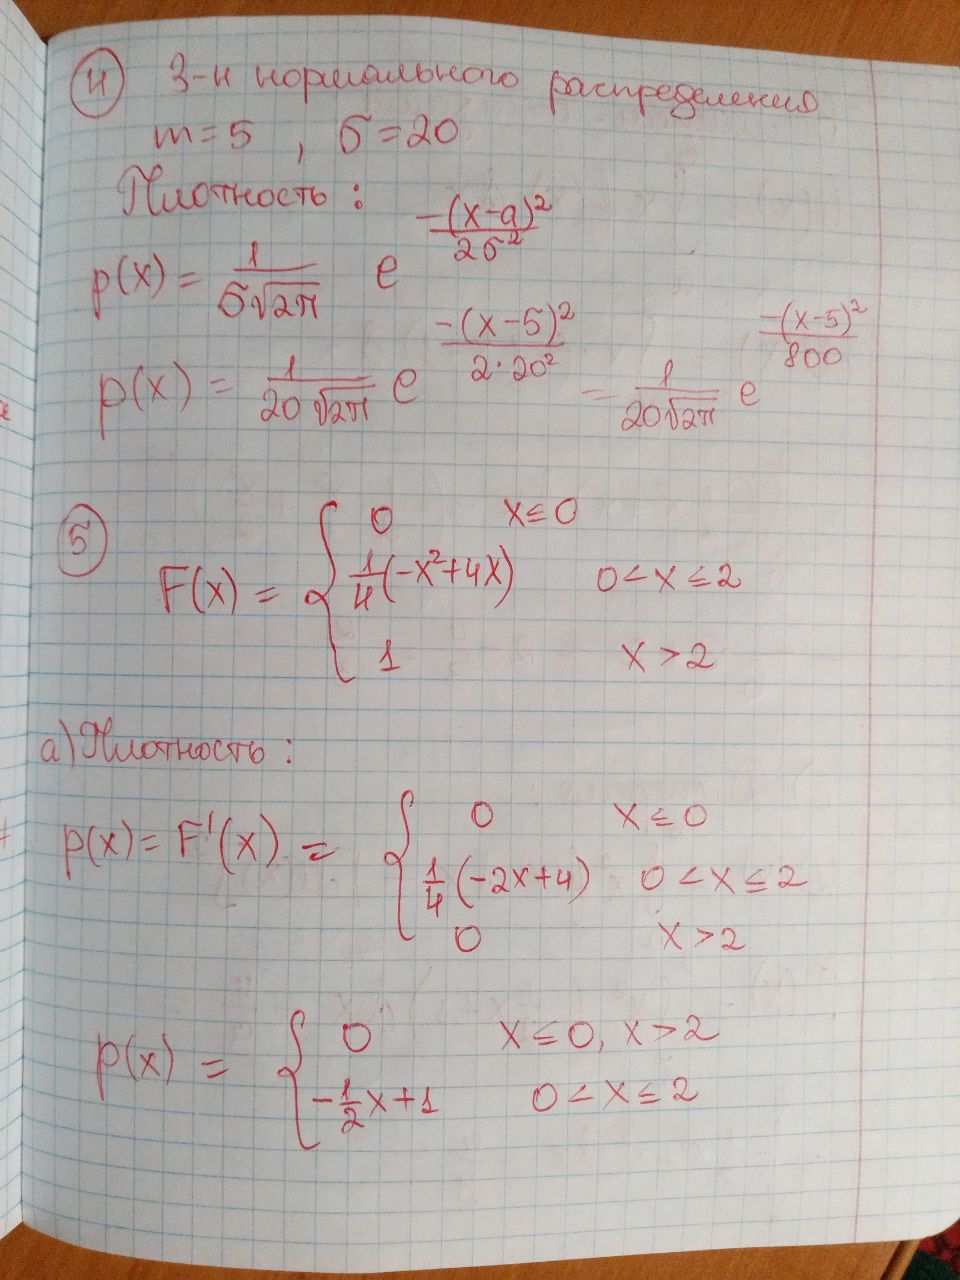 ④ З-н нормального распределения
m = 5 , σ = 20
Плотность :
p(x) = 1/(σ√2π) e^(-(x-a)²/2σ²)
p(x) = 1/(20√2π) e^(-(x-5)²/2·20²) = 1/(20√2π) e^(-(x-5)²/800)
⑤ F(x) = { 0 x ≤ 0
1/4(-x²+4x) 0 < x ≤ 2
1 x > 2
а) Плотность :
p(x) = F'(x) = { 0 x ≤ 0
1/4 (-2x+4) 0 < x ≤ 2
0 x > 2
p(x) = { 0 x ≤ 0, x > 2
-1/2 x + 1 0 < x ≤ 2